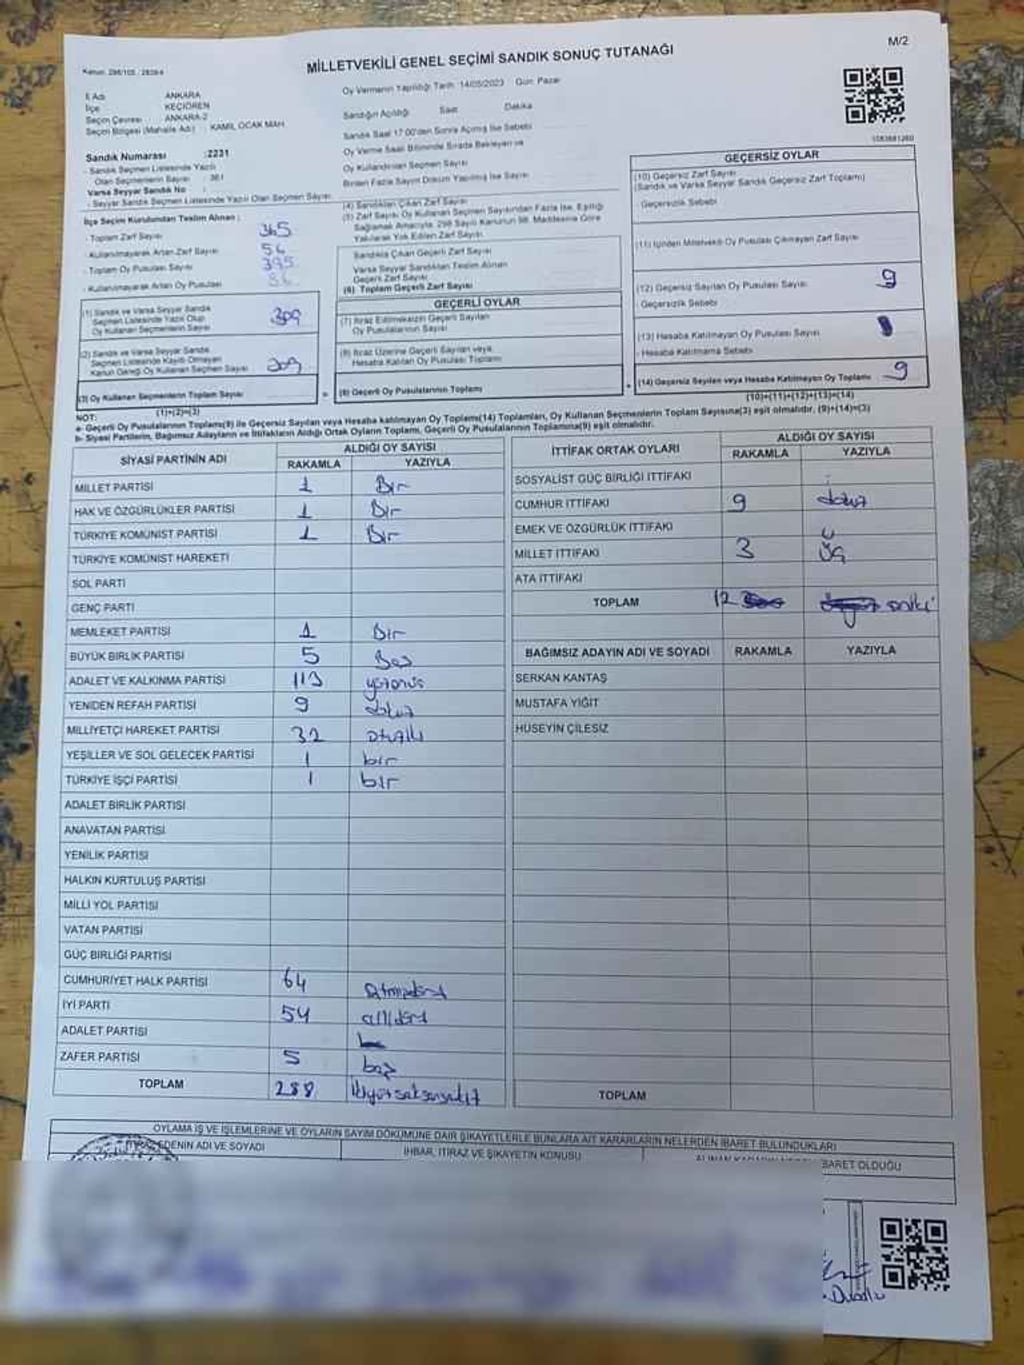 M/2
MİLLETVEKİLİ GENEL SEÇİMİ SANDIK SONUÇ TUTANAĞI
İl Adı ANKARA
İlçe KEÇİÖREN
Seçim Çevresi ANKARA-2
Seçim Bölgesi (Mahalle Adı) : KAMİL OCAK MAH
Sandık Numarası :2231
- Sandık Seçmen Listesinde Yazılı
Olan Seçmenlerin Sayısı : 361
Varsa Seyyar Sandık No :
- Seyyar Sandık Seçmen Listesinde Yazılı Olan Seçmen Sayısı
Oy Vermenin Yapıldığı Tarih :14/05/2023 Gün: Pazar
Sandığın Açıldığı Saat Dakika
Sandık Saat 17:00'den Sonra Açılmış İse Sebebi
Oy Verme Saati Bitiminde Sırada Bekleyen ve
Oy Kullandırılan Seçmen Sayısı
Birden Fazla Sayım Döküm Yapılmış İse Sayısı
(4) Sandıktan Çıkan Zarf Sayısı
(5) Zarf Sayısı Oy Kullanan Seçmen Sayısından Fazla İse, Eşitliği
Sağlamak Amacıyla, 298 Sayılı Kanunun 98. Maddesine Göre
Yakılarak Yok Edilen Zarf Sayısı
İlçe Seçim Kurulundan Teslim Alınan :
- Toplam Zarf Sayısı 365
- Kullanılmayarak Artan Zarf Sayısı 56
- Toplam Oy Pusulası Sayısı 395
- Kullanılmayarak Artan Oy Pusulası
(1) Sandık ve Varsa Seyyar Sandık
Seçmen Listesinde Yazılı Olup
Oy Kullanan Seçmenlerin Sayısı 309
(2) Sandık ve Varsa Seyyar Sandık
Seçmen Listesinde Kayıtlı Olmayan
Kanun Gereği Oy Kullanan Seçmen Sayısı
(3) Oy Kullanan Seçmenlerin Toplam Sayısı =
(1)+(2)=(3)
Sandıkta Çıkan Geçerli Zarf Sayısı
Varsa Seyyar Sandıktan Teslim Alınan
Geçerli Zarf Sayısı
(6) Toplam Geçerli Zarf Sayısı
GEÇERLİ OYLAR
(7) İtiraz Edilmeksizin Geçerli Sayılan
Oy Pusulalarının Sayısı
(8) İtiraz Üzerine Geçerli Sayılan veya
Hesaba Katılan Oy Pusulası Toplamı
(9) Geçerli Oy Pusulalarının Toplamı +
GEÇERSİZ OYLAR
(10) Geçersiz Zarf Sayısı
(Sandık ve Varsa Seyyar Sandık Geçersiz Zarf Toplamı)
Geçersizlik Sebebi
(11) İçinden Milletvekili Oy Pusulası Çıkmayan Zarf Sayısı
(12) Geçersiz Sayılan Oy Pusulası Sayısı 9
Geçersizlik Sebebi
(13) Hesaba Katılmayan Oy Pusulası Sayısı
- Hesaba Katılmama Sebebi
(14) Geçersiz Sayılan veya Hesaba Katılmayan Oy Toplamı 9
(10)+(11)+(12)+(13)=(14)
NOT:
a- Geçerli Oy Pusulalarının Toplamı(9) ile Geçersiz Sayılan veya Hesaba katılmayan Oy Toplamı(14) Toplamları, Oy Kullanan Seçmenlerin Toplam Sayısına(3) eşit olmalıdır, (9)+(14)=(3)
b- Siyasi Partilerin, Bağımsız Adayların ve İttifakların Aldığı Ortak Oyların Toplamı, Geçerli Oy Pusulalarının Toplamına(9) eşit olmalıdır.
SİYASİ PARTİNİN ADI ALDIĞI OY SAYISI
RAKAMLA YAZIYLA
MİLLET PARTİSİ 1 Bir
HAK VE ÖZGÜRLÜKLER PARTİSİ 1 Bir
TÜRKİYE KOMÜNİST PARTİSİ 1 Bir
TÜRKİYE KOMÜNİST HAREKETİ
SOL PARTİ
GENÇ PARTİ
MEMLEKET PARTİSİ 1 Bir
BÜYÜK BİRLİK PARTİSİ 5 Beş
ADALET VE KALKINMA PARTİSİ 113
YENİDEN REFAH PARTİSİ 9 dokuz
MİLLİYETÇİ HAREKET PARTİSİ 32 otuziki
YEŞİLLER VE SOL GELECEK PARTİSİ 1 bir
TÜRKİYE İŞÇİ PARTİSİ 1 bir
ADALET BİRLİK PARTİSİ
ANAVATAN PARTİSİ
YENİLİK PARTİSİ
HALKIN KURTULUŞ PARTİSİ
MİLLİ YOL PARTİSİ
VATAN PARTİSİ
GÜÇ BİRLİĞİ PARTİSİ
CUMHURİYET HALK PARTİSİ 64 atmışdört
İYİ PARTİ 54 ellidört
ADALET PARTİSİ
ZAFER PARTİSİ 5 beş
TOPLAM 288 ikiyüzseksensekiz
İTTİFAK ORTAK OYLARI ALDIĞI OY SAYISI
RAKAMLA YAZIYLA
SOSYALİST GÜÇ BİRLİĞİ İTTİFAKI
CUMHUR İTTİFAKI 9 dokuz
EMEK VE ÖZGÜRLÜK İTTİFAKI
MİLLET İTTİFAKI 3 üç
ATA İTTİFAKI
TOPLAM 12 oniki
BAĞIMSIZ ADAYIN ADI VE SOYADI RAKAMLA YAZIYLA
SERKAN KANTAŞ
MUSTAFA YİĞİT
HÜSEYİN ÇİLESİZ
TOPLAM
OYLAMA İŞ VE İŞLEMLERİNE VE OYLARIN SAYIM DÖKÜMÜNE DAİR ŞİKAYETLERLE BUNLARA AİT KARARLARIN NELERDEN İBARET BULUNDUKLARI
İTİRAZ EDENİN ADI VE SOYADI İHBAR, İTİRAZ VE ŞİKAYETİN KONUSU